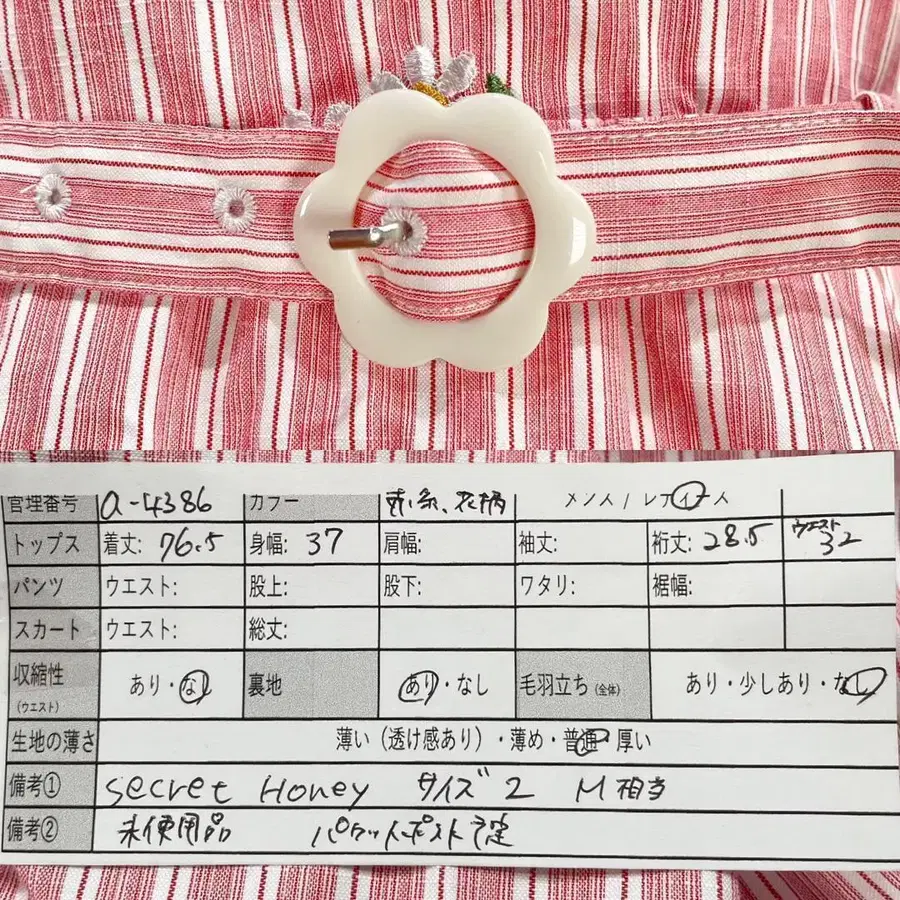 管理番号 a-4386 カラー 赤系、花柄 メンズ / レディース
トップス 着丈: 76.5 身幅: 37 肩幅: 袖丈: 裄丈: 28.5 ウエスト 32
パンツ ウエスト: 股上: 股下: ワタリ: 裾幅:
スカート ウエスト: 総丈:
収縮性 (ウエスト) あり・なし 裏地 あり・なし 毛羽立ち (全体) あり・少しあり・なし
生地の薄さ 薄い（透け感あり）・薄め・普通・厚い
備考① secret Honey サイズ 2 M相当
備考② 未使用品 パケットポスト予定